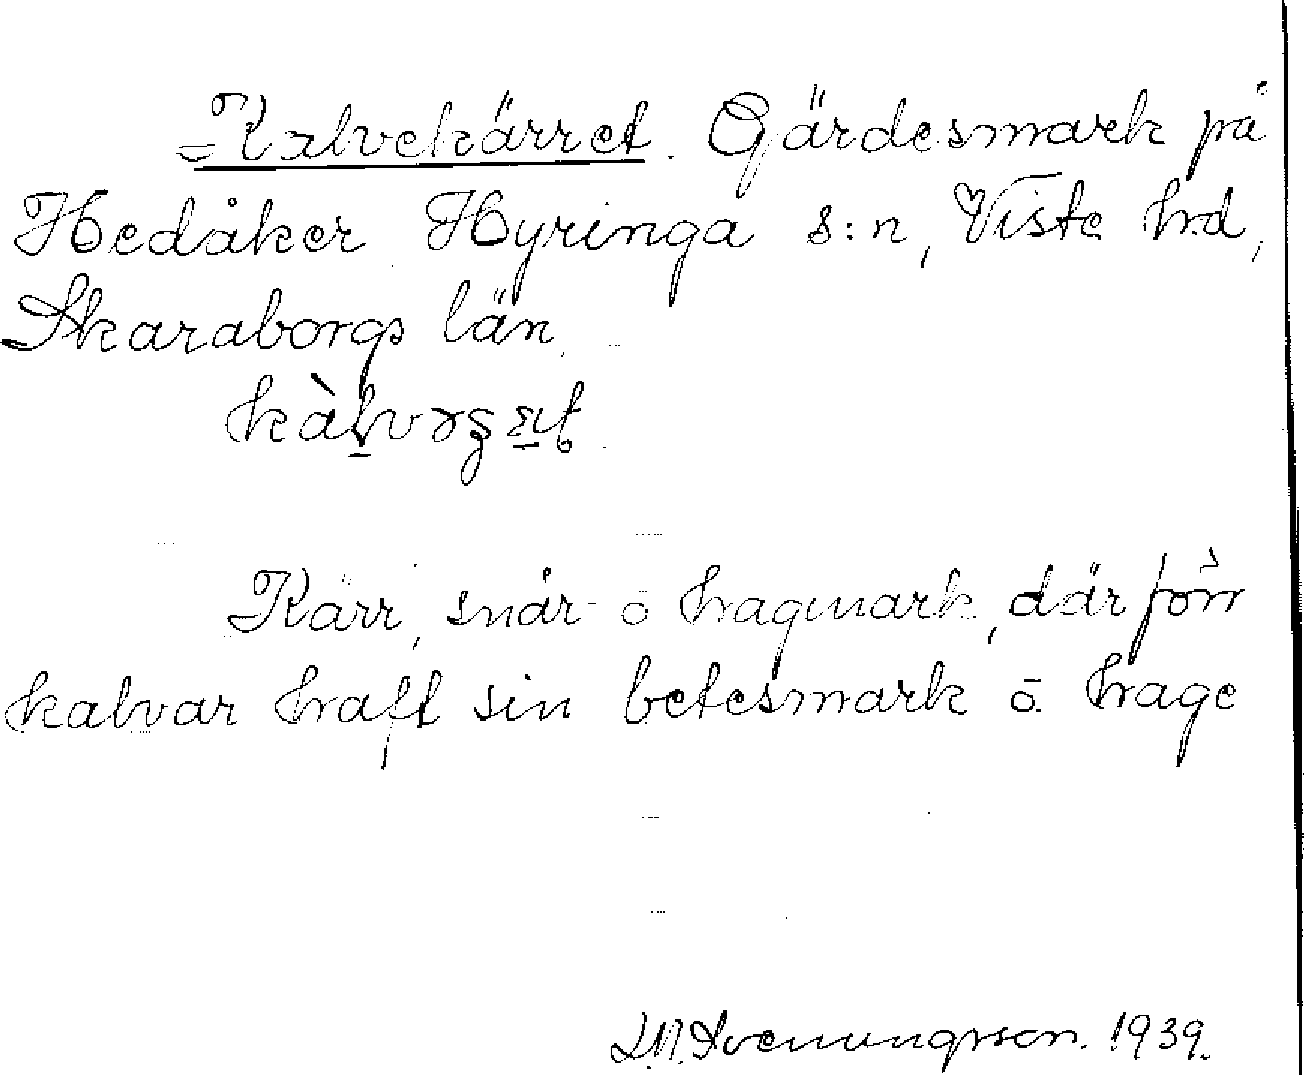 Kalvekärret. Gärdesmark på
Hedåker Hyringa s:n, Viste hd,
Skaraborgs län.
Kärr, snår- o hagmark, där förr
kalvar haft sin betesmark o. hage
Svenungsson. 1939.